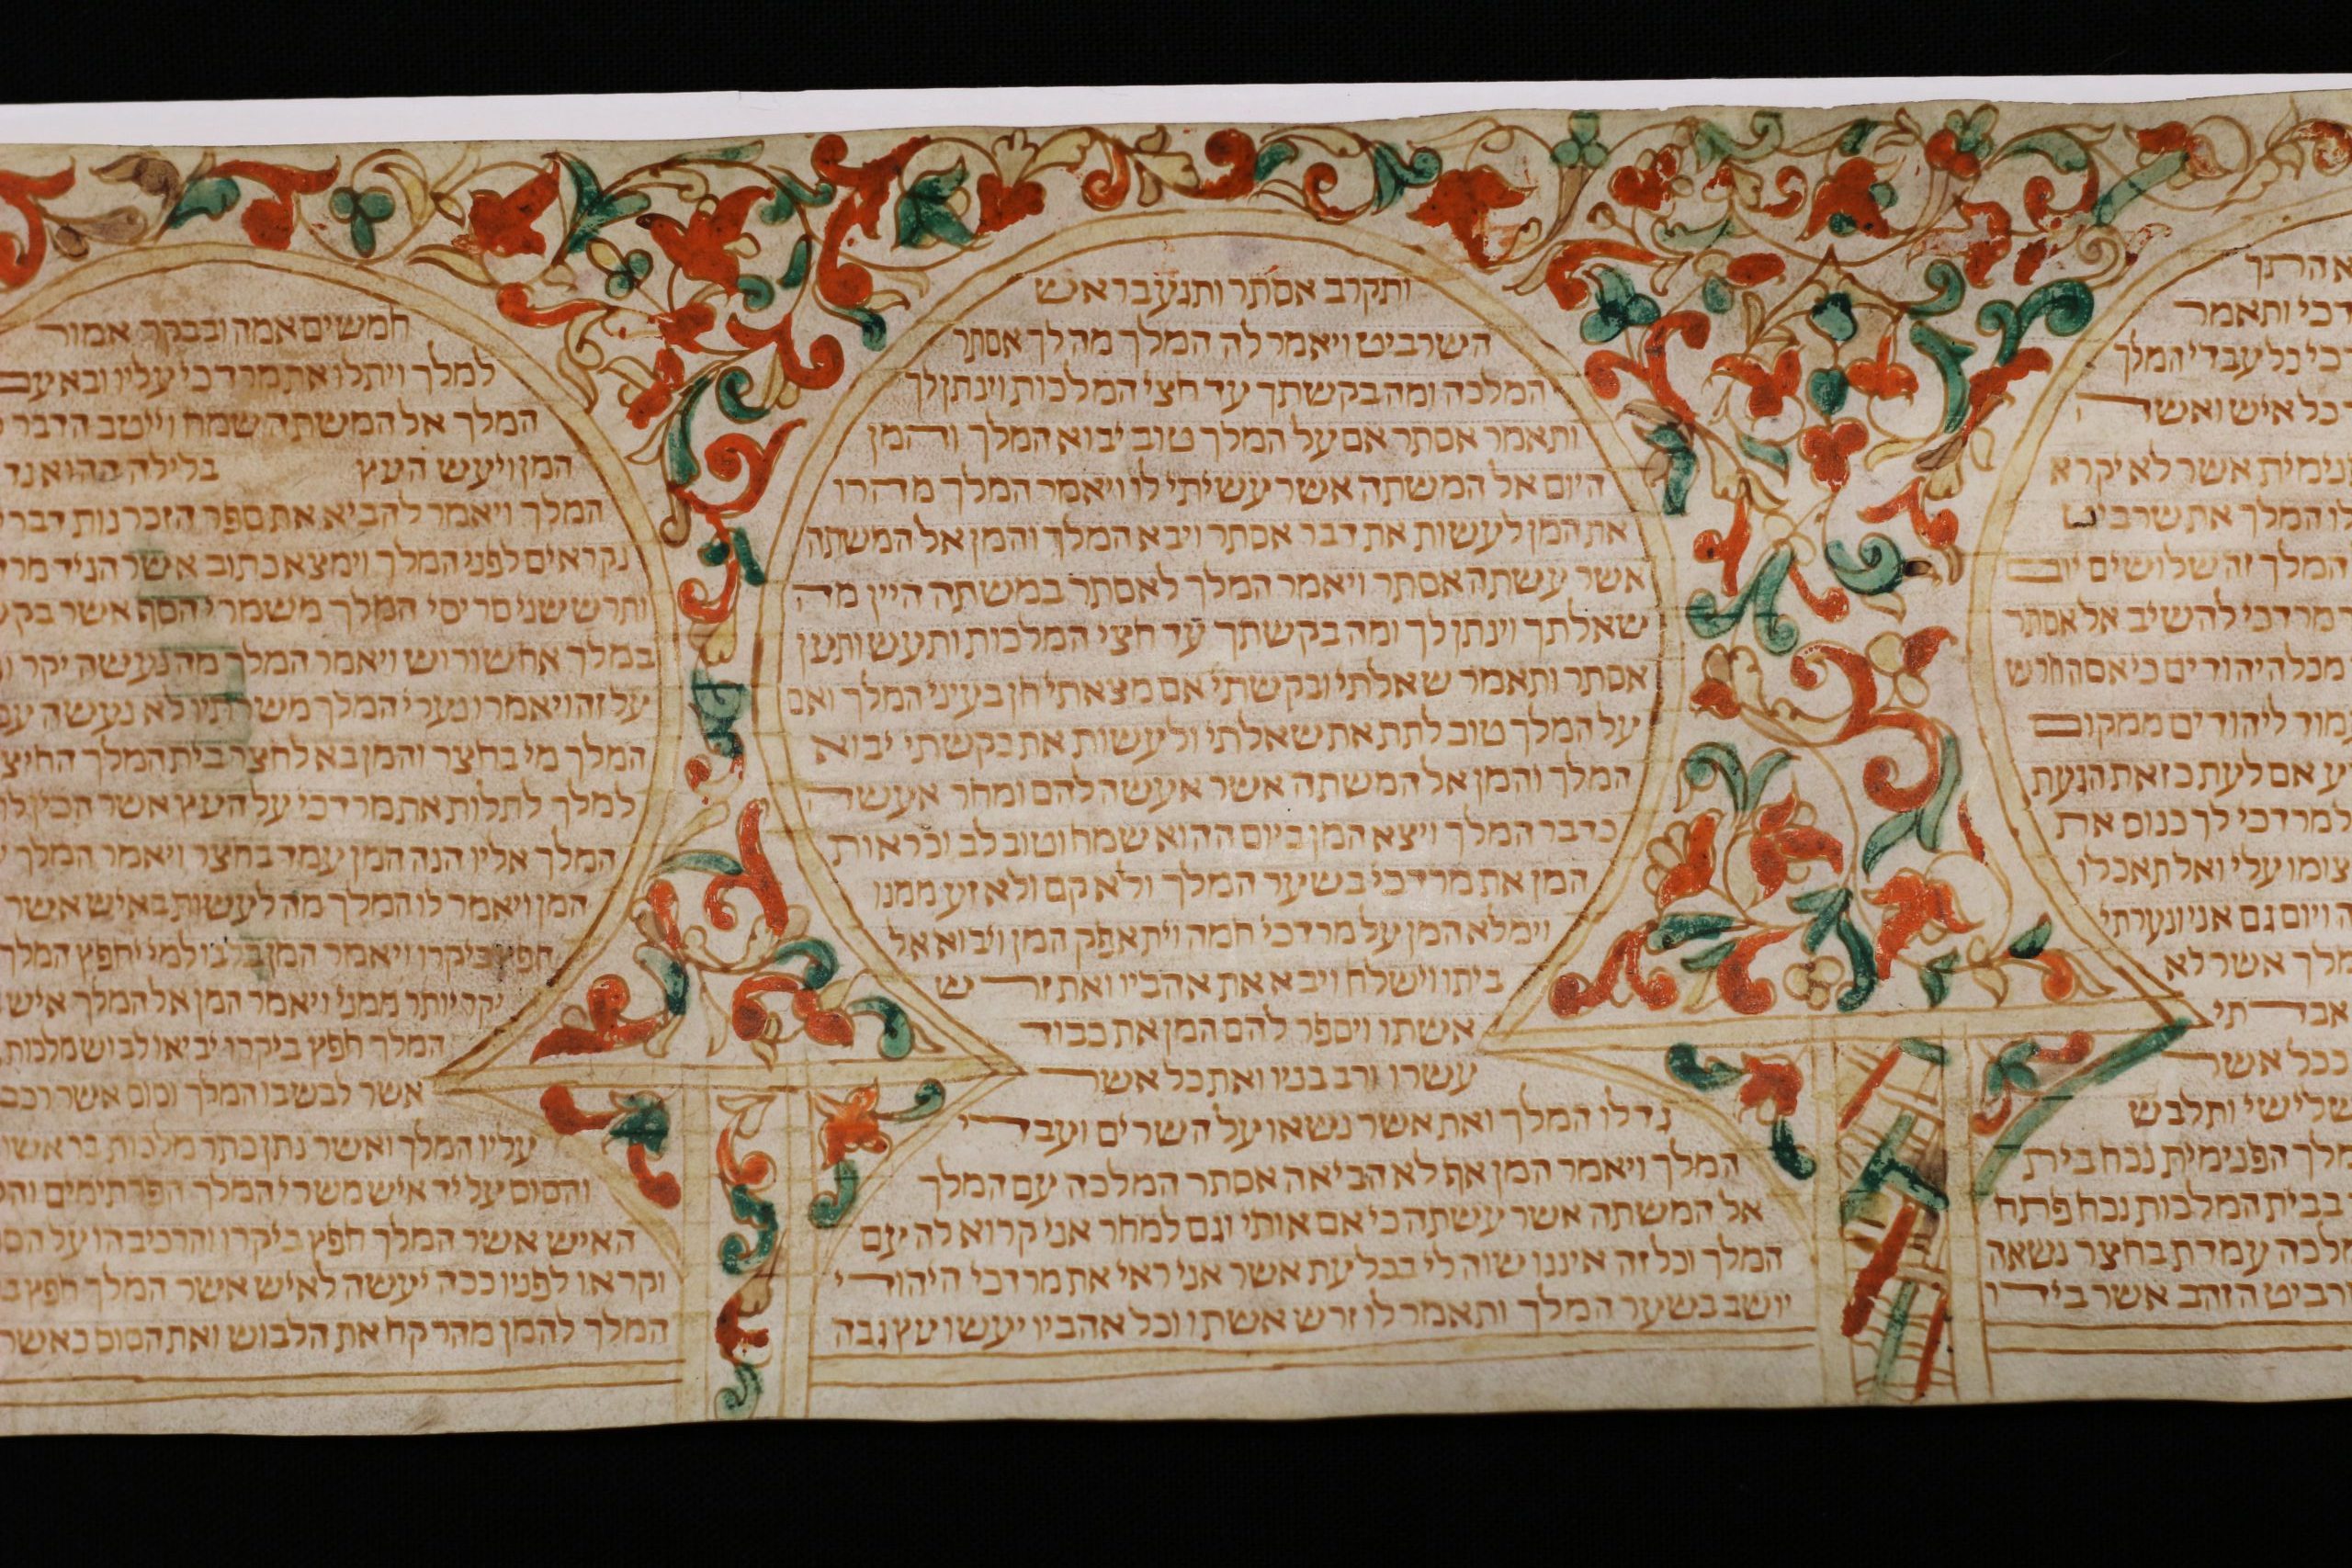 התך
דכי ותאמר
כי כל עבדי המלך
כל איש ואשה
נימית אשר לא יקרא
ו המלך את שרביט
המלך זה שלושים יום
מרדכי להשיב אל אסתר
מכל היהודים כי אם החרש
מוד ליהודים ממקום
ע אם לעת כזאת הגעת
למרדכי לך כנוס את
צומו עלי ואל תאכלו
ויום גם אני ונערתי
מלך אשר לא
אבדתי
ככל אשר
שלישי ותלבש
מלך הפנימית נכח בית
בבית המלכות נכח פתח
מלכה עמדת בחצר נשאה
רביט הזהב אשר בידו
ותקרב אסתר ותגע בראש
השרביט ויאמר לה המלך מה לך אסתר
המלכה ומה בקשתך עד חצי המלכות וינתן לך
ותאמר אסתר אם על המלך טוב יבוא המלך והמן
היום אל המשתה אשר עשיתי לו ויאמר המלך מהרו
את המן לעשות את דבר אסתר ויבא המלך והמן אל המשתה
אשר עשתה אסתר ויאמר המלך לאסתר במשתה היין מה
שאלתך וינתן לך ומה בקשתך עד חצי המלכות ותעש ותען
אסתר ותאמר שאלתי ובקשתי אם מצאתי חן בעיני המלך ואם
על המלך טוב לתת את שאלתי ולעשות את בקשתי יבוא
המלך והמן אל המשתה אשר אעשה להם ומחר אעשה
כדבר המלך ויצא המן ביום ההוא שמח וטוב לב וכראות
המן את מרדכי בשער המלך ולא קם ולא זע ממנו
וימלא המן על מרדכי חמה ויתאפק המן ויבוא אל
ביתו וישלח ויבא את אהביו ואת זרש
אשתו ויספר להם המן את כבוד
עשרו ורב בניו ואת כל אשר
גדלו המלך ואת אשר נשאו על השרים ועבדי
המלך ויאמר המן אף לא הביאה אסתר המלכה עם המלך
אל המשתה אשר עשתה כי אם אותי וגם למחר אני קרוא לה עם
המלך וכל זה איננו שוה לי בכל עת אשר אני ראי את מרדכי היהודי
יושב בשער המלך ותאמר לו זרש אשתו וכל אהביו יעשו עץ גבה
חמשים אמה ובבקר אמור
למלך ויתלו את מרדכי עליו ובא עם
המלך אל המשתה שמח וייטב הדבר
המן ויעש העץ בלילה ההוא נד
המלך ויאמר להביא את ספר הזכרנות דברי
נקראים לפני המלך וימצא כתוב אשר הגיד מרד
ותרש שני סריסי המלך משמרי הסף אשר בק
במלך אחשורוש ויאמר המלך מה נעשה יקר
על זה ויאמרו נערי המלך משרתיו לא נעשה
המלך מי בחצר והמן בא לחצר בית המלך החיצ
למלך לתלות את מרדכי על העץ אשר הכין לו
המלך אליו הנה המן עמד בחצר ויאמר המלך
המן ויאמר לו המלך מה לעשות באיש אשר
חפץ ביקרו ויאמר המן בלבו למי יחפץ המלך
יקר יותר ממני ויאמר המן אל המלך איש
המלך חפץ ביקרו יביאו לבוש מלכות
אשר לבש בו המלך וסוס אשר רכב
עליו המלך ואשר נתן כתר מלכות בראשו
והסוס על יד איש משרי המלך הפרתימים וה
האיש אשר המלך חפץ ביקרו והרכיבהו על הס
וקראו לפניו ככה יעשה לאיש אשר המלך חפץ
המלך להמן מהר קח את הלבוש ואת הסוס כאשר